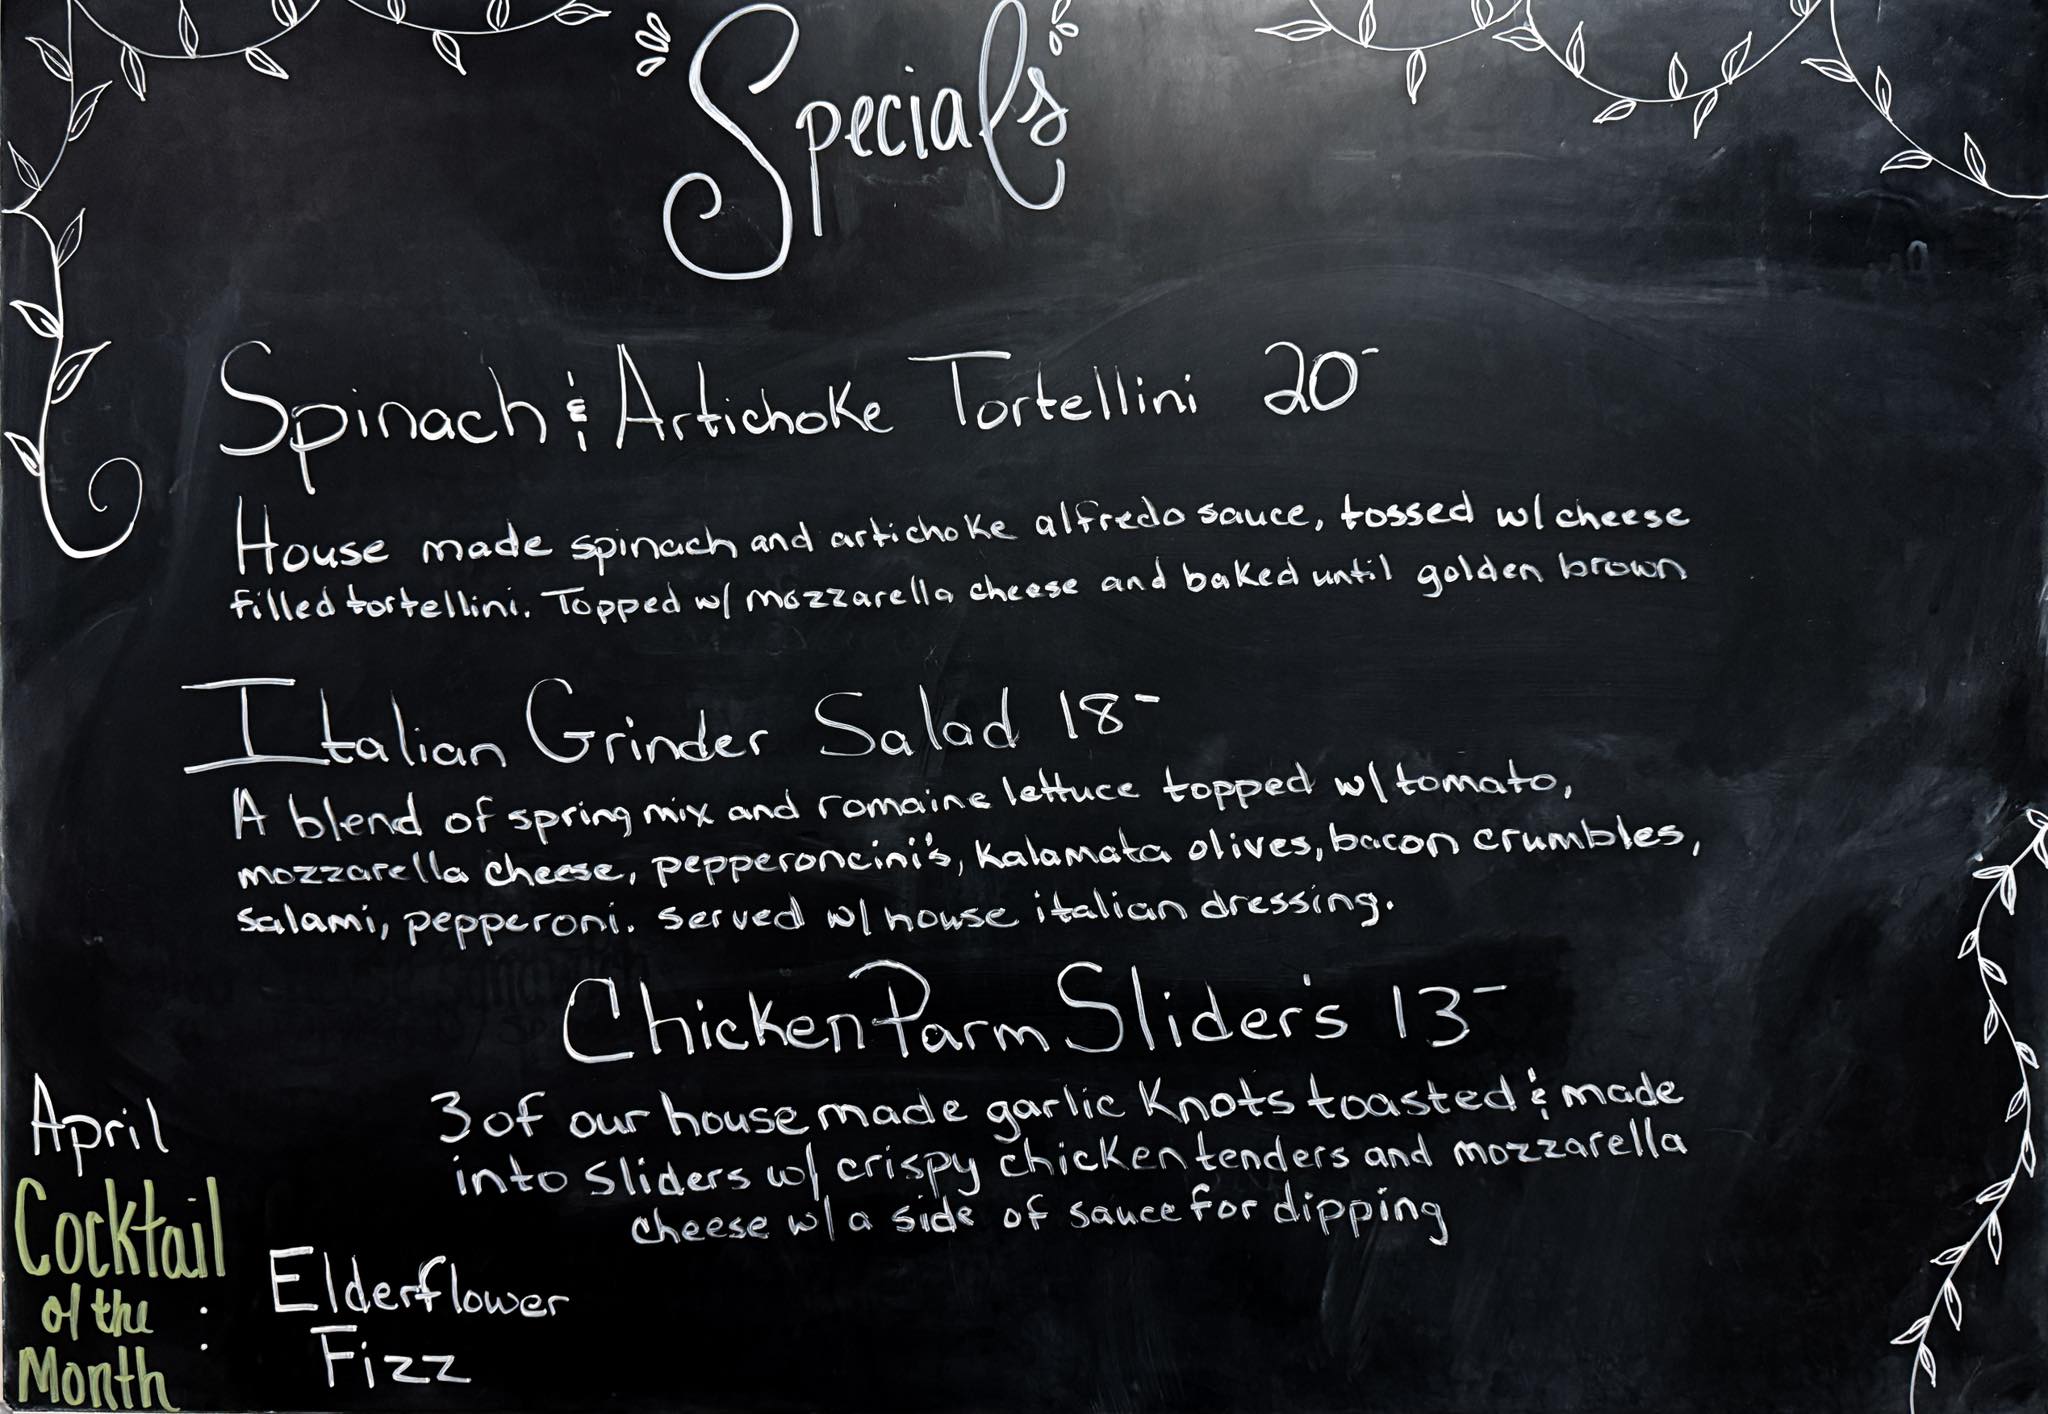 Specials
Spinach & Artichoke Tortellini 20-
House made spinach and artichoke alfredo sauce, tossed w/ cheese
filled tortellini. Topped w/ mozzarella cheese and baked until golden brown
Italian Grinder Salad 18-
A blend of spring mix and romaine lettuce topped w/ tomato,
mozzarella cheese, pepperoncini's, kalamata olives, bacon crumbles,
salami, pepperoni. served w/ house italian dressing.
Chicken Parm Slider's 13-
3 of our house made garlic knots toasted & made
into sliders w/ crispy chicken tenders and mozzarella
cheese w/ a side of sauce for dipping
April
Cocktail
of the
Month :
Elderflower
Fizz